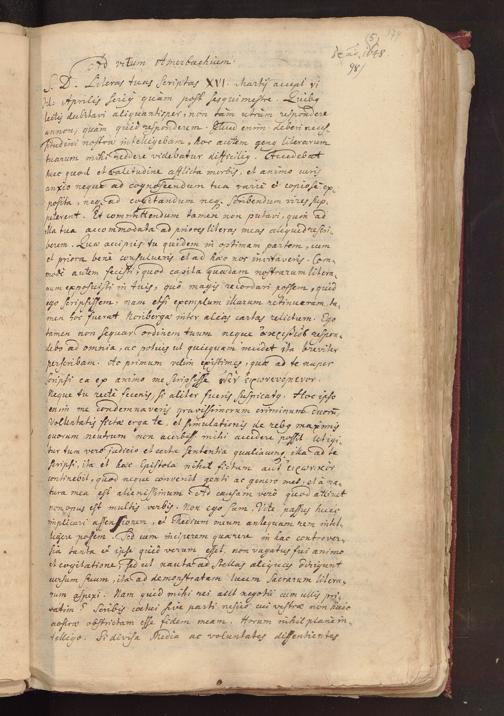 (5)
de aō. 1548
98)
Ad vitum Amerbachium.
S. D. Literas tuas scriptas XVI. Martij accepi VI
Id. Aprilis serius quàm post sesquimestre. Quibus
lectis dubitavi aliquantisper, non tàm utrùm respondere
annon, quàm quid responderem. enim deberi neces-
situdini nostrae intelligebam, hoc autem genus literarum
tuarum mihi reddere videbatur difficilius. Accedebat
huc quod et valitudine afflicta morbis, et animo curis
anxio neque ad cognoscendum tua variè et copiosè ex-
posita, neque ad cogitandum neque scribendum vires sup-
peterent. Et committendum tamen non putavi, quin ad
illa tua accommodata ad priores literas meas aliquid rescri-
berem. Quae accipies tu quidem in optimam partem, cum
et priora benè consulueris et ad haec nos invitaveris. Com-
modè autem fecisti, quod capita quaedam nostrarum litera-
rum exposuisti in tuis, quò magis recordari possem, quid
ego scripsissem. nam etsi exemplum illarum retinueram, ta-
men hoc fuerat Noribergae inter alias cartas relictum. Ego
tamen non sequar ordinem tuum neque respon-
debo ad omnia, ac potius ut quicquam incidet ita breviter
perscribam. Ac primum velim existimes, quae ad te nuper
scripsi ea ex animo me scripsisse
Neque tu rectè feceris, si aliter fueris suspicatus. Hoc ipso
enim me condemnaveris gravissimorum criminum duorum,
voluntatis fictae erga te, et simulationis de rebus maximis
quorum neutrum non acerbissimè mihi accidere possit. Utigi-
tur tum vero judicio et certa sententia qualiacunque ista ad te
scripsi, ita et haec Epistola nihil fictum aut
continebit, quod neque convenit genti ac generi meo, et à na-
tura mea est alienissimum. Ad causam verò quod attinet
non opus est multis verbis. Non ego sum, Vite passus hic
implicari assensionem, et studium meum antequam rem intel-
ligere possem. Sed cum inciperem quaerere in hac controver-
sia tanta et ipse quid verum esset, non vagatus fui animo
et cogitatione, sed ut nautae ad stellas aliquas dirigunt
cursum suum, ita ad demonstratam lucem sacrarum litera-
rum aspexi. Nam quid mihi nei aut negotii cum ullis pri-
vatim? Scribis coetui sive parti nescio cui vestrae non
nostrae obstrictam esse fidem meam. Horum nihil planè in-
telligo. Si divisa studia ac voluntates dissentientes